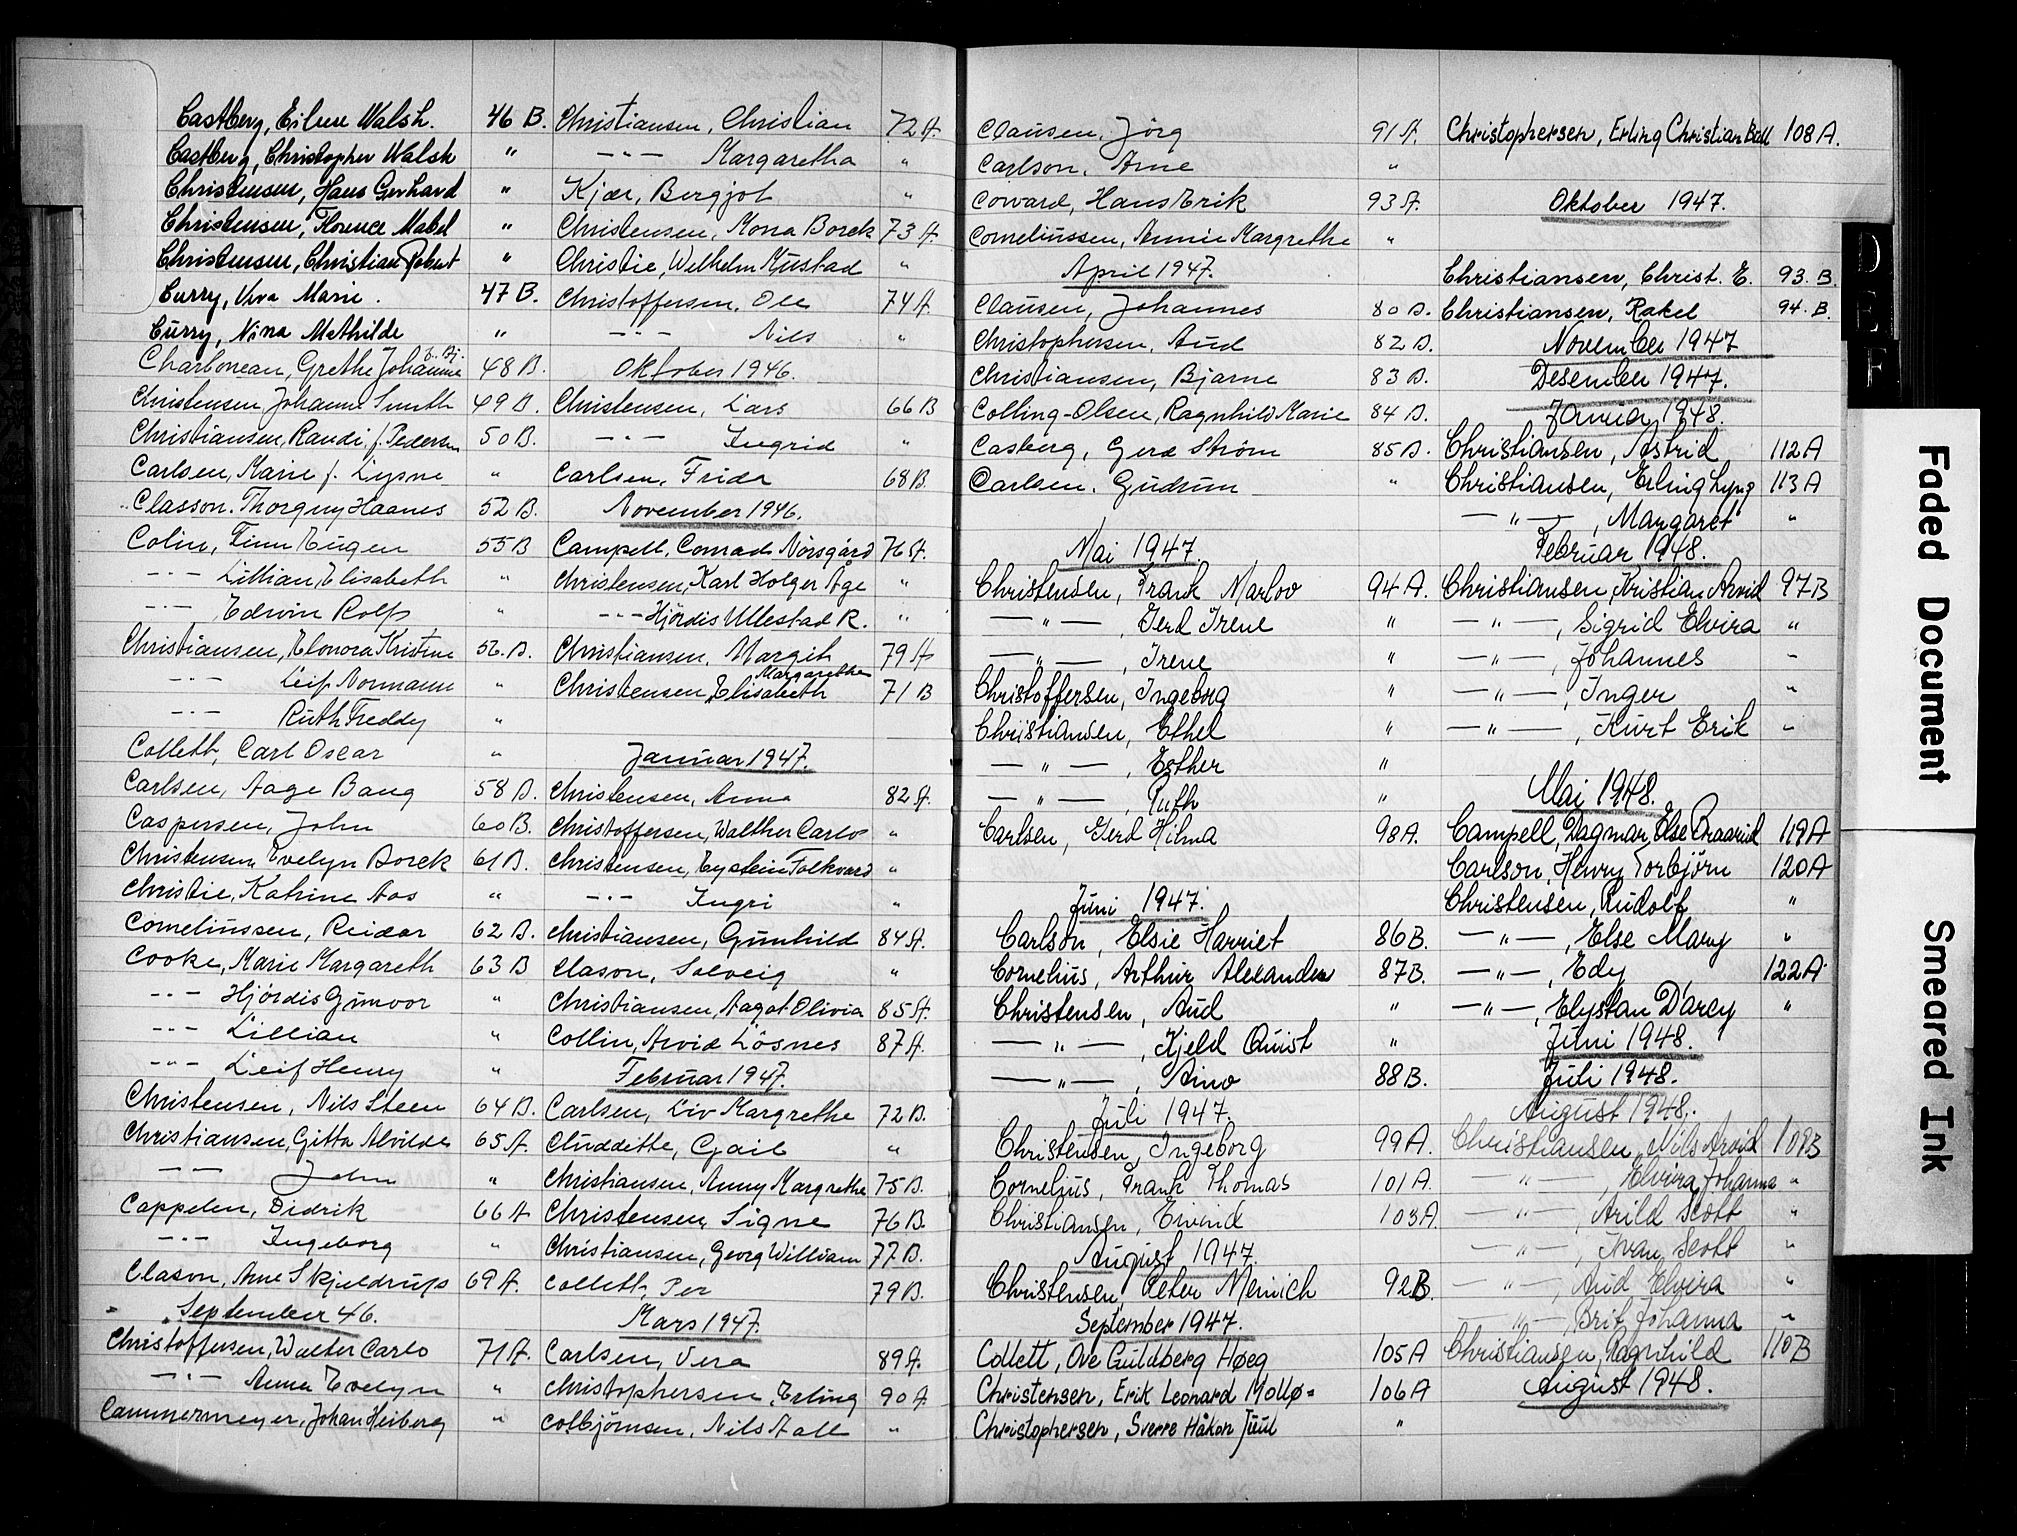 Castberg, Eileen Walsh. 46 B.
Castberg, Christopher Walsh "
Christensen, Hans Gerhard "
Christensen, Florence Mabel "
Christensen, Christian Robert "
Curry, Viva Marie. 47 B.
Curry, Nina Mathilde "
Charboneau, Grethe Johanne 48 B.
Christensen Johanne Smith 49 B.
Christiansen, Randi f. Pedersen 50 B.
Carlsen, Marie f. Lysne "
Classon. Thorguny Haanes 52 B.
Colin, Finn Eugen 55 B
-"- Lillian, Elisabeth "
-"- Edwin Rolf "
Christiansen, Elonora Kristine 56. B.
-"- Leif Normann "
-"- Ruth Freddy "
Collett, Carl Oscar "
Carlsen, Aage Bang 58 B.
Caspersen, John 60 B.
Christensen, Evelyn Borck 61 B.
Christie, Katrine Aas "
Corneliussen, Reidar 62 B.
Cooke, Marie Margareth 63 B
-"- Hjördis Gunvor "
-"- Lillian "
-"- Leif Henry "
Christensen, Nils Steen 64 B.
Christiansen, Gitta Alvilde 65 A.
-"- John "
Cappelen, Didrik 66 A
-"- Ingeborg "
Clason, Arne Skjeldrup 69 A.
September 46.
Christoffersen, Walter Carlo 71 A.
-"- Anna Evelyn "
Cammermeyer, Johan Heiberg "
Christiansen, Christian 72 A
-"- Margaretha "
Kjær, Bergjot "
Christensen, Mona Borck 73 A.
Christie, Wilhelm Mustad "
Christoffersen. Ole 74 A.
-"- Nils "
Oktober 1946.
Christensen, Lars 66 B
-"- Ingrid "
Carlsen, Frida 68 B.
November 1946.
Campell, Conrad Nörsgård 76 A.
Christensen, Karl Holger Åge "
-"- Hjördis Ullestad R. "
Christiansen, Margit 79 A
Margarethe
Christensen, Elisabeth 71 B
Januar 1947.
Christensen, Anna 82 A.
Christoffersen, Walther Carlo "
Christensen, Eystein Folkvard "
-"- Ingri "
Christiansen, Gunhild 84 A.
Clason, Solveig "
Christiansen, Aagot Olivia 85 A.
Collin, Arvid Lösnes 87 A.
Februar 1947.
Carlsen, Liv Margrethe 72 B.
Cluddette, Gail "
Christiansen, Anny Margrethe 75 B.
Christensen, Signe 76 B.
Christiansen, Georg William 77 B.
Collett, Per 79 B.
Mars 1947.
Carlsen, Vera 89 A.
Christophersen, Erling 90 A
Colbjörnsen, Nils Aall "
Clausen, Jörg 91 A.
Carlson, Arne "
Coward, Hans Erik 93 A.
Corneliussen, Annie Margrethe "
April 1947.
Clausen, Johannes 80 B.
Christophersen, Aud 82 B.
Christiansen, Bjarne 83 B.
Colling-Olsen, Ragnhild Marie 84 B.
Casberg, Gerd Ström 85 B.
Carlsen. Gudrun "
Mai 1947.
Christensen, Frank Marlov 94 A.
— " —, Gerd Irene "
— " —, Irene "
Christoffersen, Ingeborg "
Christiansen, Ethel "
— " —, Esther "
— " —, Ruth "
Carlsen, Gerd Hilma 98 A.
Juni 1947.
Carlson, Elsie Harriet 86 B.
Cornelius, Arthur Alexander 87 B.
Christensen, Aud "
— " —, Kjeld Quist "
— " —, Aino 88 B.
Juli 1947.
Christensen, Ingeborg 99 A.
Cornelius, Frank Thomas 101 A.
Christiansen, Eivind 103 A
August 1947.
Christensen, Peter Meinich 92 B.
September 1947.
Collett, Ove Guldberg Høeg 105 A
Christensen, Erik Leonard Mollø= 106 A
Christophersen, Sverre Håkon Juul "
Christophersen, Erling Christian Bull 108 A.
Oktober 1947.
Christiansen, Christ. E. 93. B
Christiansen, Rakel 94. B.
November 1947
Desember 1947.
Januar 1948.
Christiansen, Astrid 112 A
Christiansen, Erling Lyng 113 A
— " —, Margaret "
Februar 1948.
Christiansen, Kristian Arvid 97 B
— " —, Sigrid Elvira "
— " —, Johannes "
— " —, Inger "
— " —, Kurt Erik "
Mai 1948.
Campell, Dagmar, Else Braarud 119 A
Carlson, Henry Torbjörn 120 A
Christensen, Rudolf "
— " —, Else Mary "
— " —, Edy 122 A
— " —, Elystan D'arcy "
Juni 1948.
Juli 1948.
August 1948.
Christiansen, Nils Arvid 109 B
— " —, Elvira Johanna "
— " —, Arild Scott "
— " —, Ivan Scott "
— " —, Aud Elvira "
— " —, Brit Johanna "
Christiansen, Ragnhild 110 B
August 1948.
D
E
F
Faded Document
Smeared Ink